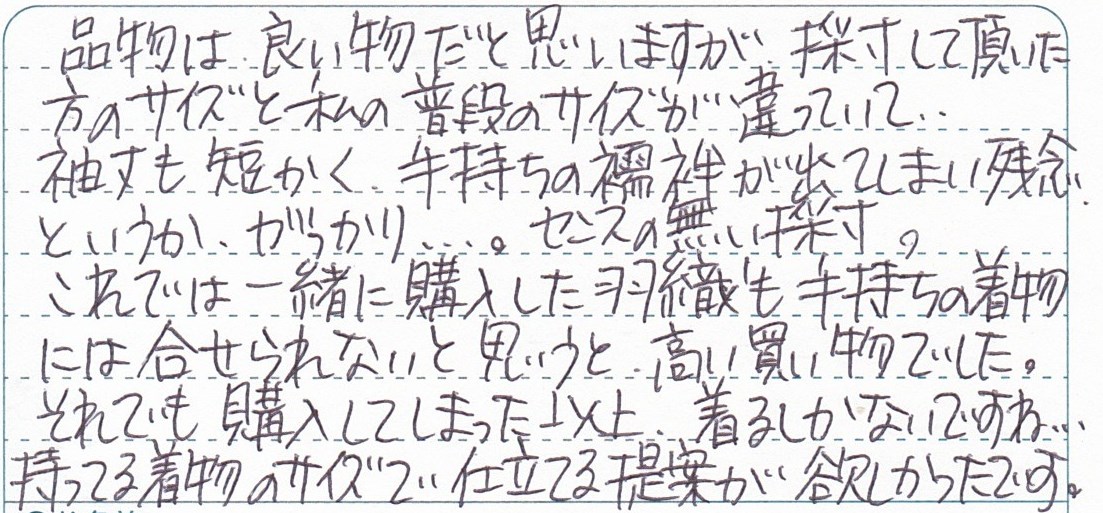 品物は良い物だと思いますが、採寸して頂いた
方のサイズと私の普段のサイズが違っていて‥
袖丈も短かく、手持ちの襦袢が出てしまい残念
というか、がっかり…。センスの無い採寸。
これでは一緒に購入した羽織も手持ちの着物
には合せられないと思うと、高い買い物でした。
それでも購入してしまった以上、着るしかないですね…
持ってる着物のサイズで仕立てる提案が欲しかったです。